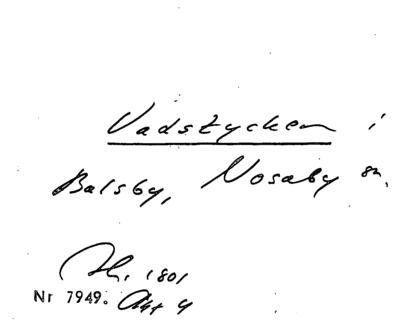 Vadstycken i
Balsby, Nosaby sn.
Sk. 1801
Nr 7949. Akt 4